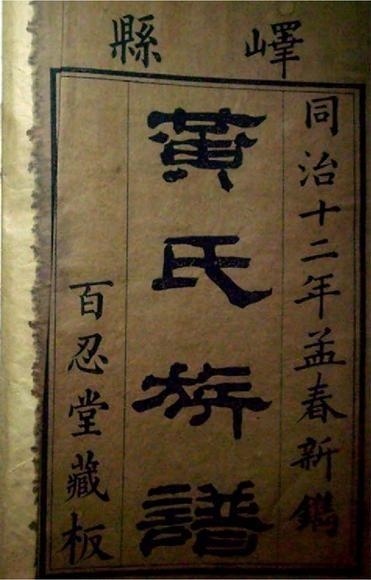 嶧縣
同治十二年孟春新鐫
黃氏族譜
百忍堂藏板